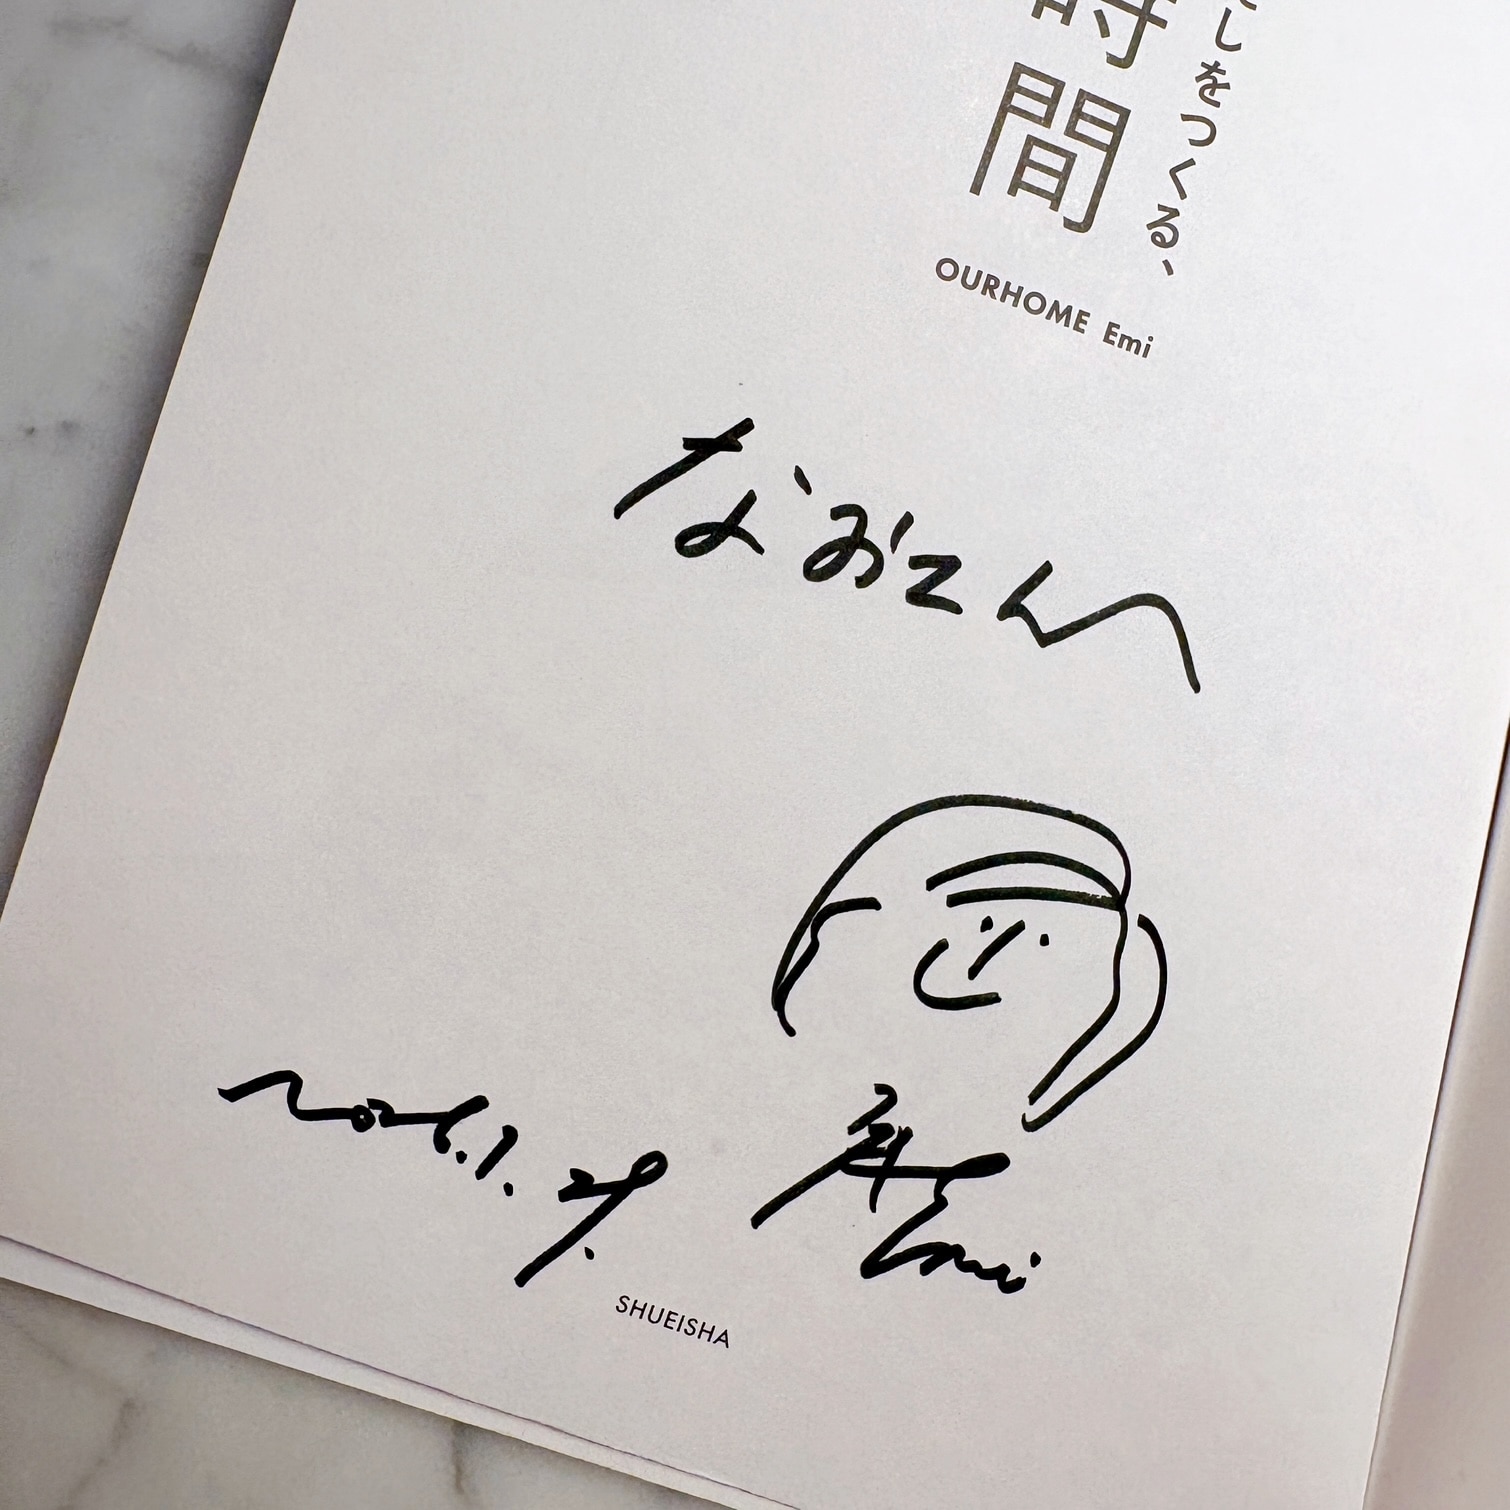 しをつくる、
時間
OURHOME Emi
なおさんへ
2026.1.29.
Emi
SHUEISHA